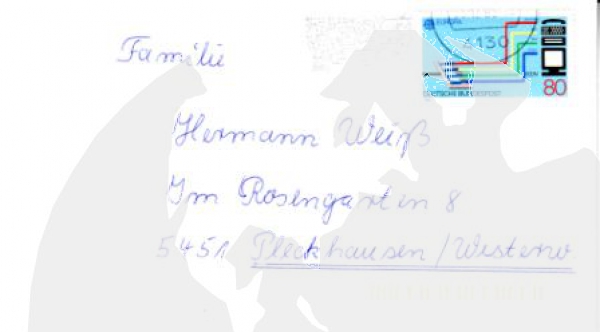 Familie
EUROPA
4130
DEUTSCHE BUNDESPOST
80
Hermann Weiß
Im Rosengarten 8
5451 Pleckhausen/Westerw